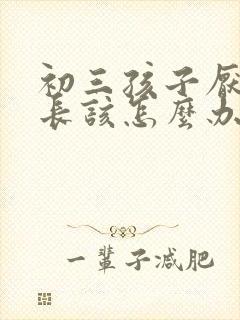 初三孩子厌
长该怎麼办
一輩子减肥